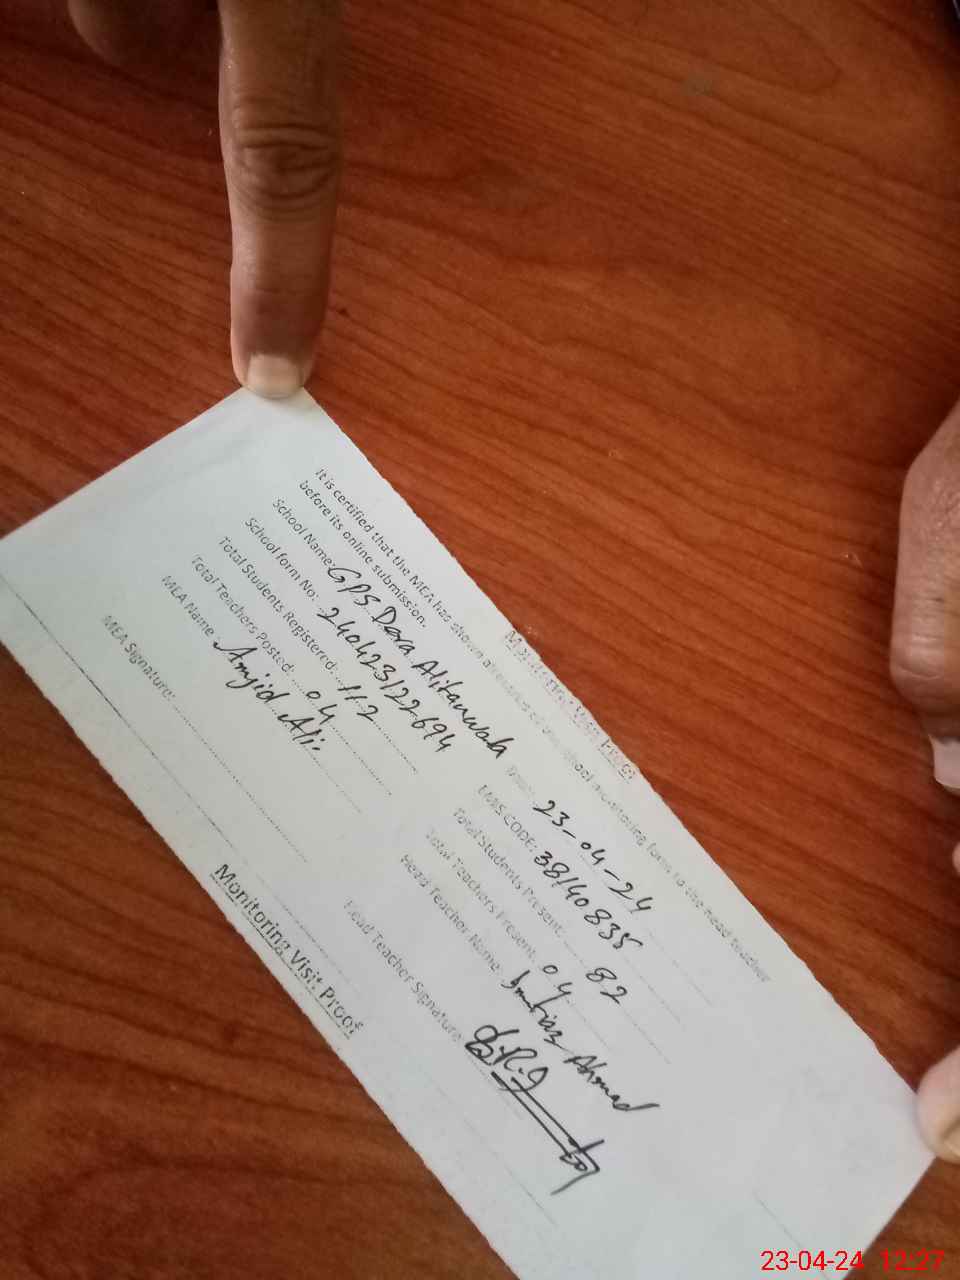 Monitoring Visit Proof
It is certified that the MEA has shown all entries of school monitoring form to the head teacher
before its online submission.
School Name: GPS Dera Alitanwala 23-04-24
School form No: 240423122694 EMIS CODE: 38140835
Total Students Registered: 112 Total Students Present: 82
Total Teachers Posted: 04 Total Teachers Present: 04
MEA Name Amjid Ali Head Teacher Name Imtiaz Ahmad
MEA Signature: Head Teacher Signature:
Monitoring Visit Proof
23-04-24 12:27